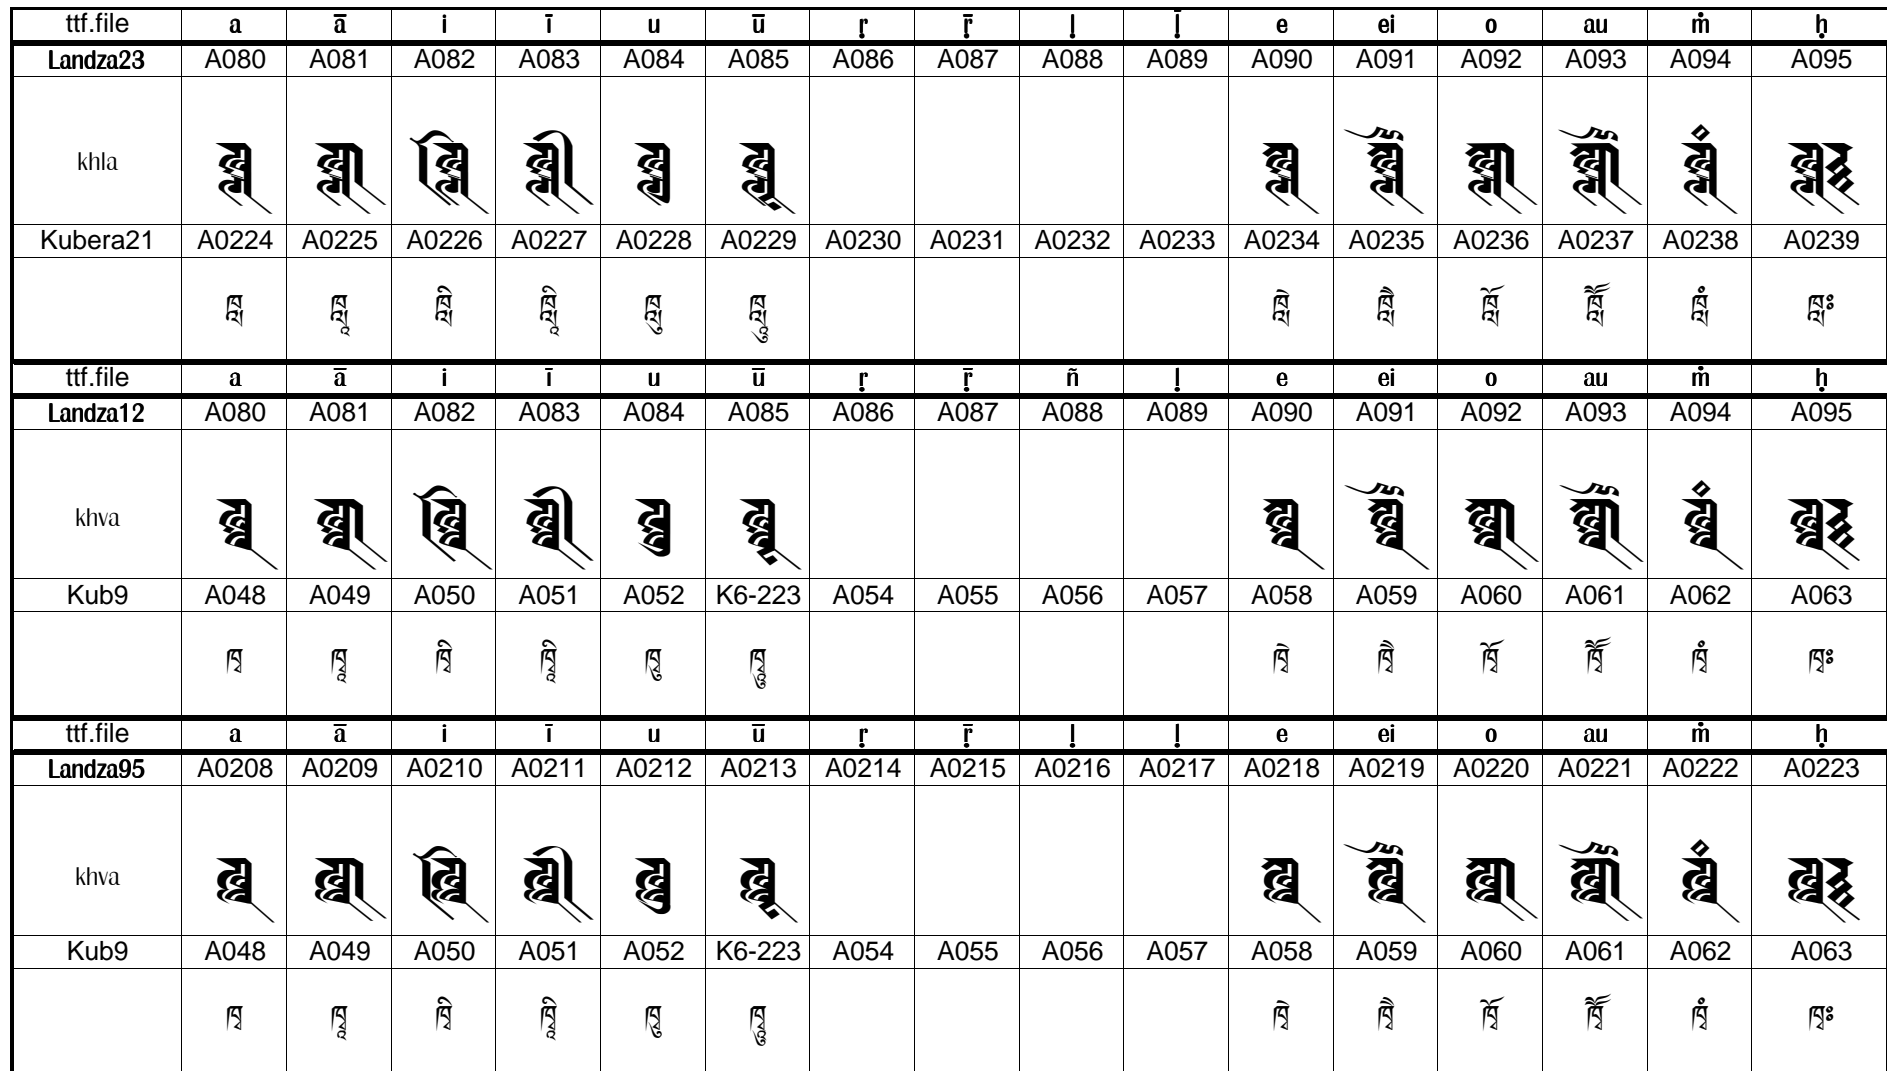 ttf.file a ā i ī u ū ṛ ṝ ḷ ḹ e ei o au ṁ ḥ
Landza23 A080 A081 A082 A083 A084 A085 A086 A087 A088 A089 A090 A091 A092 A093 A094 A095
khla
Kubera21 A0224 A0225 A0226 A0227 A0228 A0229 A0230 A0231 A0232 A0233 A0234 A0235 A0236 A0237 A0238 A0239
ཁླ ཁླཱ ཁླི ཁླཱི ཁླུ ཁླཱུ ཁླེ ཁླཻ ཁློ ཁླཽ ཁླཾ ཁླཿ
ttf.file a ā i ī u ū ṛ ṝ ñ ḷ e ei o au ṁ ḥ
Landza12 A080 A081 A082 A083 A084 A085 A086 A087 A088 A089 A090 A091 A092 A093 A094 A095
khva
Kub9 A048 A049 A050 A051 A052 K6-223 A054 A055 A056 A057 A058 A059 A060 A061 A062 A063
ཁྭ ཁྭཱ ཁྭི ཁྭཱི ཁྭུ ཁྭཱུ ཁྭེ ཁྭཻ ཁྭོ ཁྭཽ ཁྭཾ ཁྭཿ
ttf.file a ā i ī u ū ṛ ṝ ḷ ḷ e ei o au ṁ ḥ
Landza95 A0208 A0209 A0210 A0211 A0212 A0213 A0214 A0215 A0216 A0217 A0218 A0219 A0220 A0221 A0222 A0223
khva
Kub9 A048 A049 A050 A051 A052 K6-223 A054 A055 A056 A057 A058 A059 A060 A061 A062 A063
ཁྭ ཁྭཱ ཁྭི ཁྭཱི ཁྭུ ཁྭཱུ ཁྭེ ཁྭཻ ཁྭོ ཁྭཽ ཁྭཾ ཁྭཿ